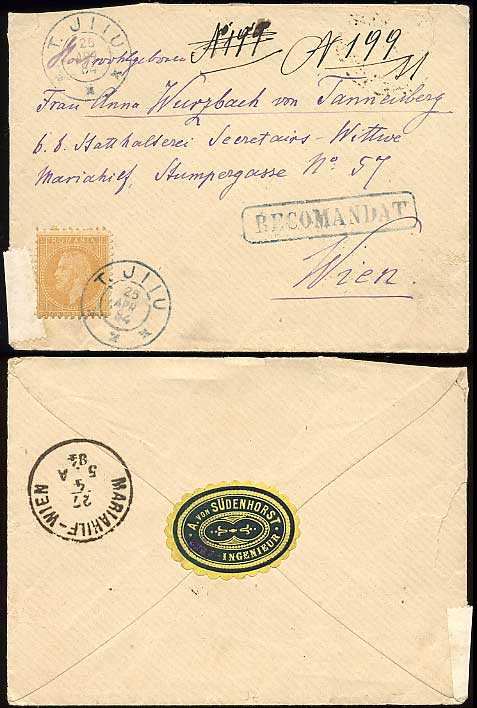 T. JIIU
25
APR
84
Hochwohlgeboren
No 199
N 199
Frau Anna Wurzbach von Tannenberg
k. k. Statthalterei Secretairs-Wittwe
Mariahilf, Stumpergasse No. 57
RECOMANDAT
Wien.
ROMANIA
T. JIIU
25
APR
84
MARIAHILF-WIEN
27
4
5 A
8½
A. VON SÜDENHORST
INGENIEUR